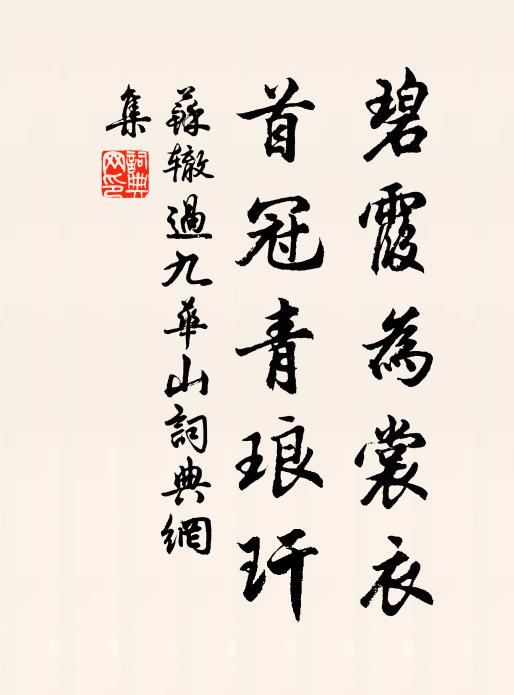 碧霞為裳衣
首冠青琅玕
蘇轍過九華山詞典網
集
詞典
网印